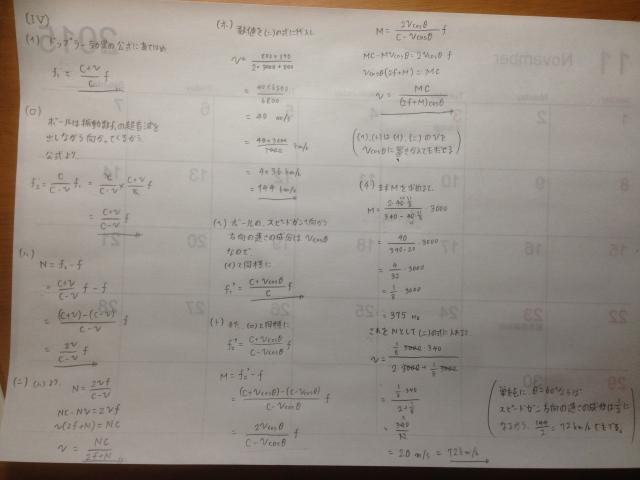 (IV)
(イ) ドップラー効果の公式にあてはめ
f₁ = (C+V)/C f
(ロ)
ボールは振動数f₁の超音波を
出しながら向かってくるから
公式より、
f₂ = C/(C-V) f₁ = C/(C-V) × (C+V)/C f
= (C+V)/(C-V) f
(ハ)
N = f₂ - f
= (C+V)/(C-V) f - f
= ((C+V)-(C-V))/(C-V) f
= 2V/(C-V) f
(ニ) (ハ)より、 N = 2Vf/(C-V)
NC - NV = 2Vf
V(2f+N) = NC
V = NC/(2f+N)
(ホ) 数値を(ニ)の式に代入し
= 40 m/s
= 4×36 km/h
= 144 km/h
(ヘ) ボールの、スピードガン方向の
速さの成分は Vcosθ
なので、
(イ)と同様に
f₁' = (C+Vcosθ)/C f
(ト) また、(ロ)と同様に
f₂' = (C+Vcosθ)/(C-Vcosθ) f
M = f₂' - f
= ((C+Vcosθ)-(C-Vcosθ))/(C-Vcosθ) f
= 2Vcosθ/(C-Vcosθ) f
M = 2Vcosθ/(C-Vcosθ) f
MC - MVcosθ = 2Vcosθ f
Vcosθ(2f+M) = MC
V = MC/((2f+M)cosθ)
(チ) まずMを求めると、
M = (2·40·1/2)/(340-40·1/2) · 3000
= 40/(340-20) · 3000
= 4/32 · 3000
= 1/8 · 3000
= 375 Hz
これをNとして(ニ)の式に入れると
V = (1/8·3000·340)/(2·3000+1/8·3000)
= (1/8·340)/(2+1/8)
= 20 m/s = 72 km/h
単純に、θ=60°ならば
スピードガン方向の速さの成分は1/2に
なるから、144/2 = 72 km/h でもでる。
2015
11
November